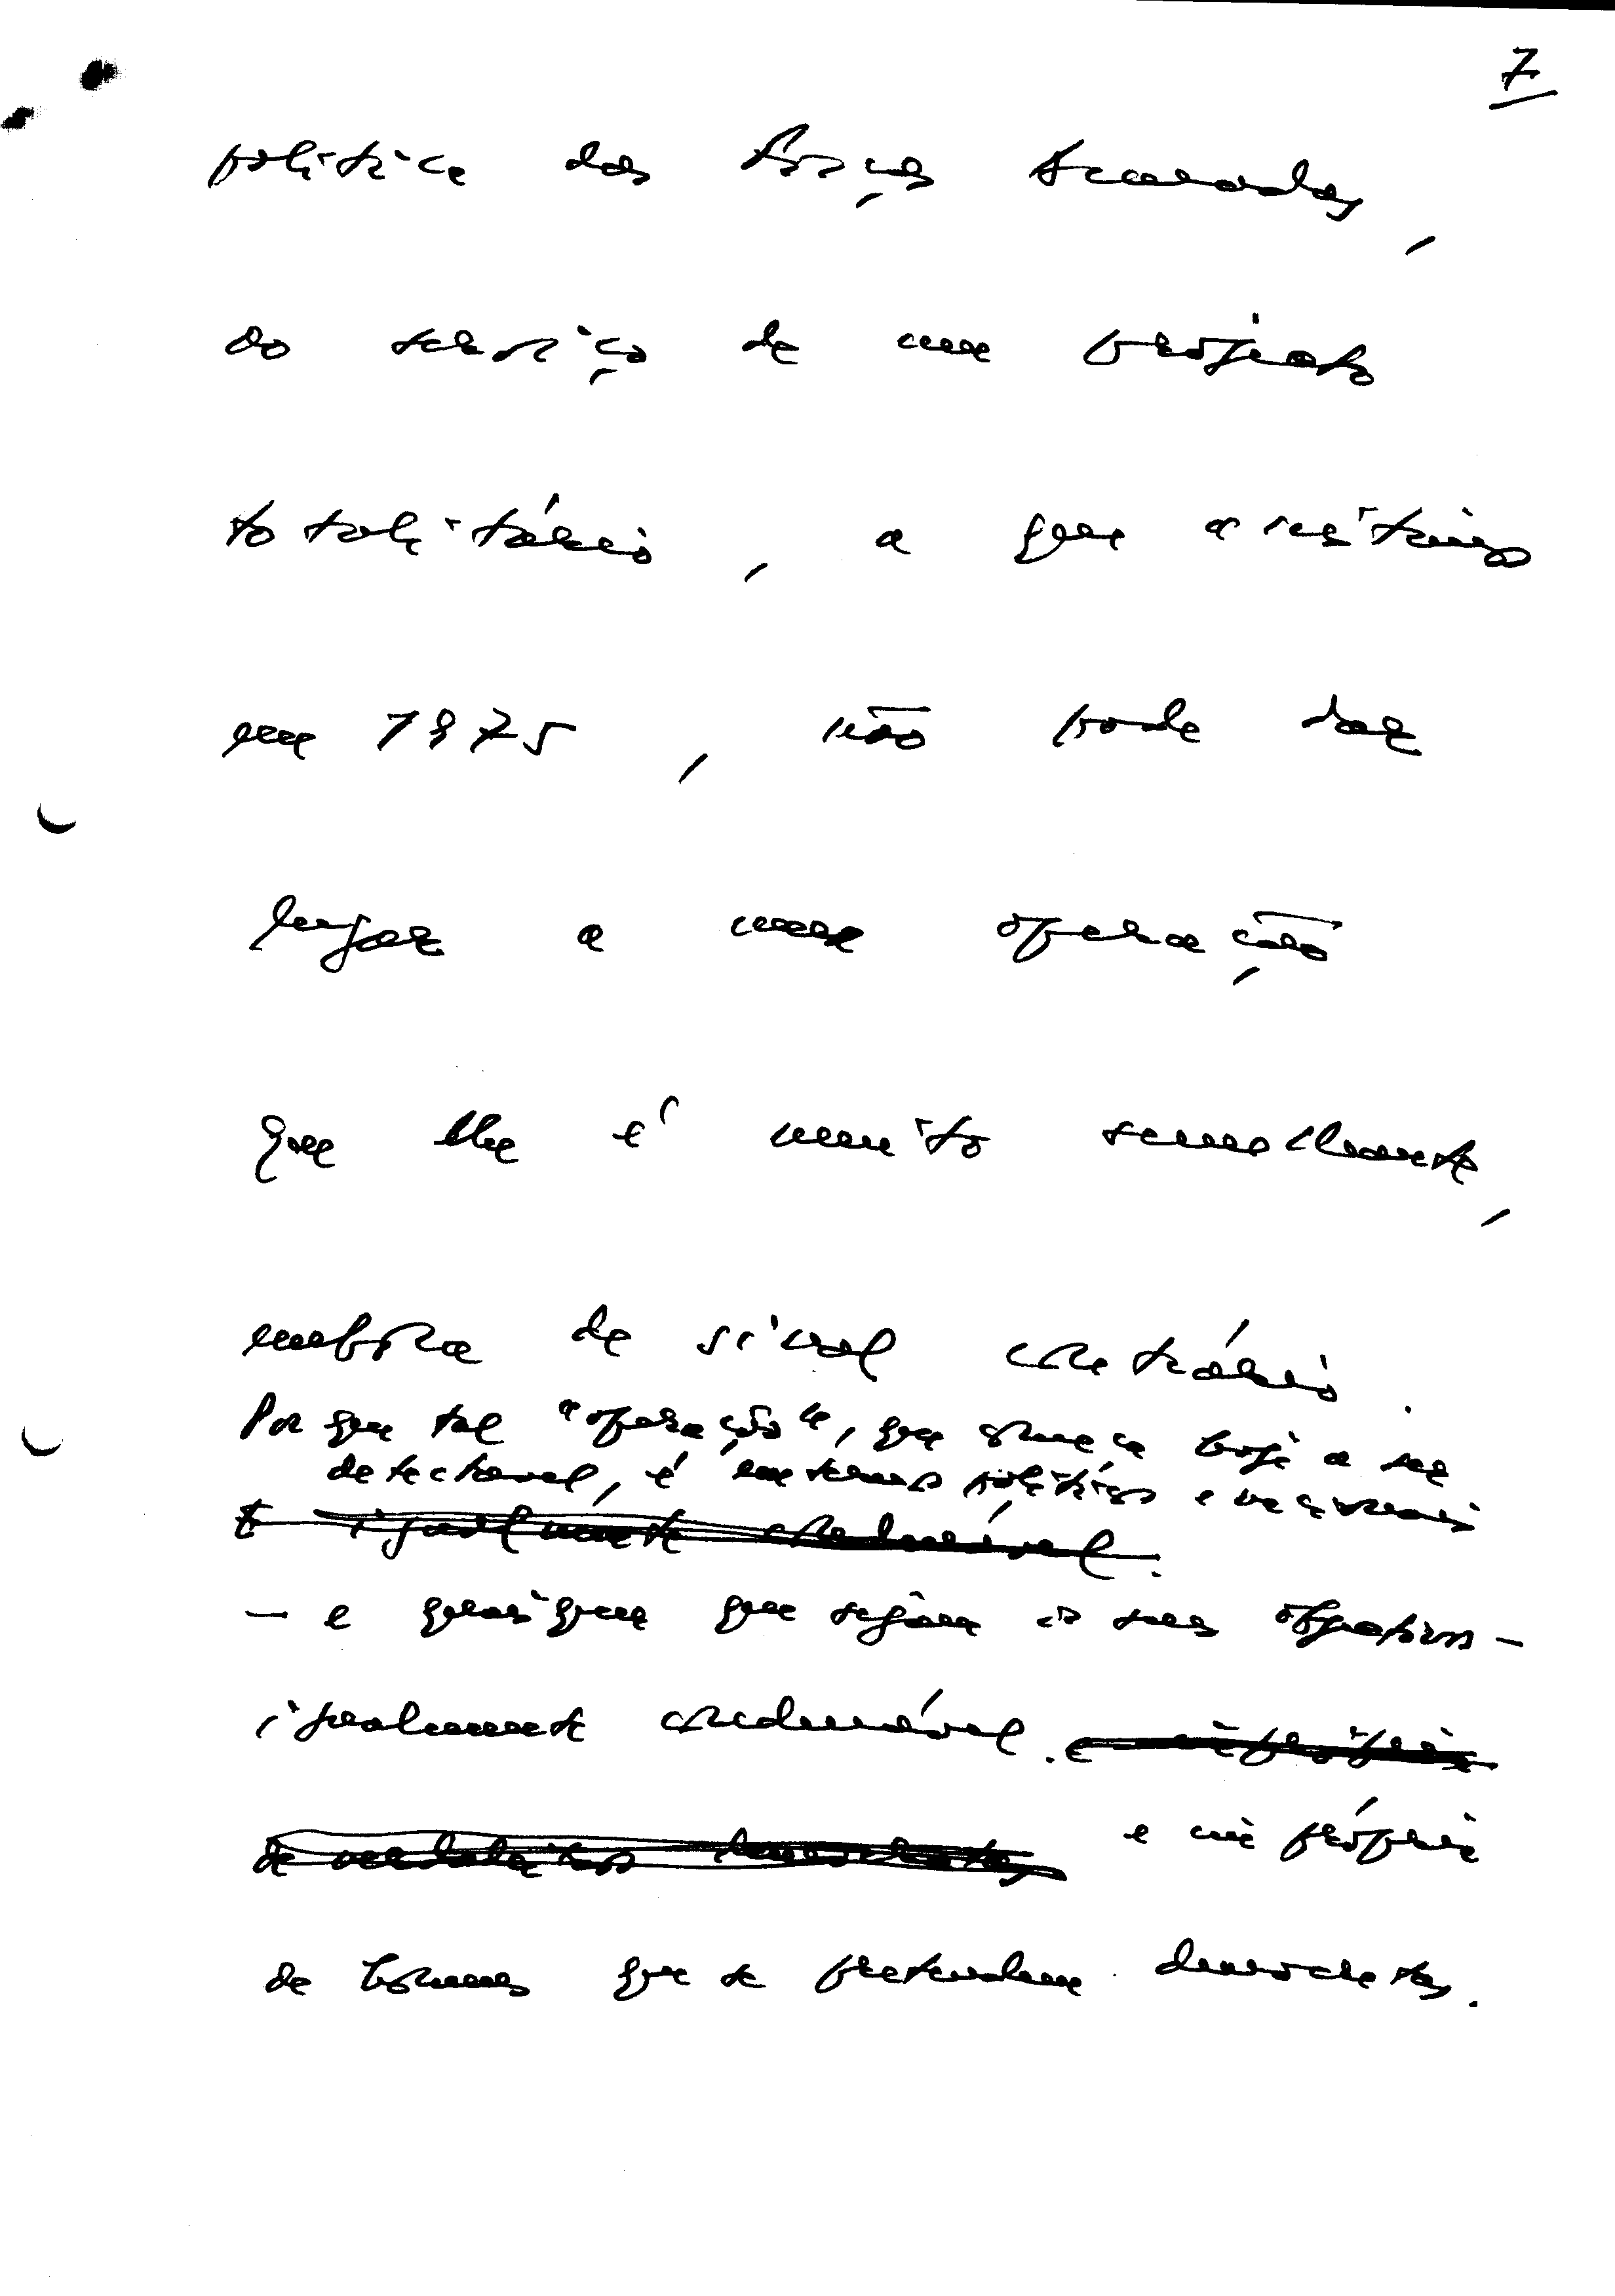 7
política das Forças Armadas,
ao serviço de um projecto
totalitário, a que assistimos
em 1975, não pode dar
lugar a uma operação
que lhe é muito semelhante,
embora de sinal contrário.
Porque tal "operação", que começa hoje a ser
detectável, é em termos políticos e nacionais
É igualmente condenável.
— e quaisquer que sejam os seus objectivos —
igualmente condenável. e imprópria
de verdadeiros democratas e imprópria
de homens que se pretendem democratas.